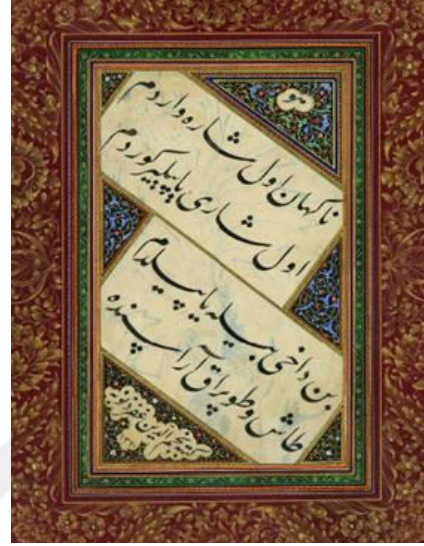 هو
ناکهان اول شاره واردم
اول شاری یاپیلیر کوردم
بن داخی بیله یاپیلدم
طاش و طوپراق آراسینده